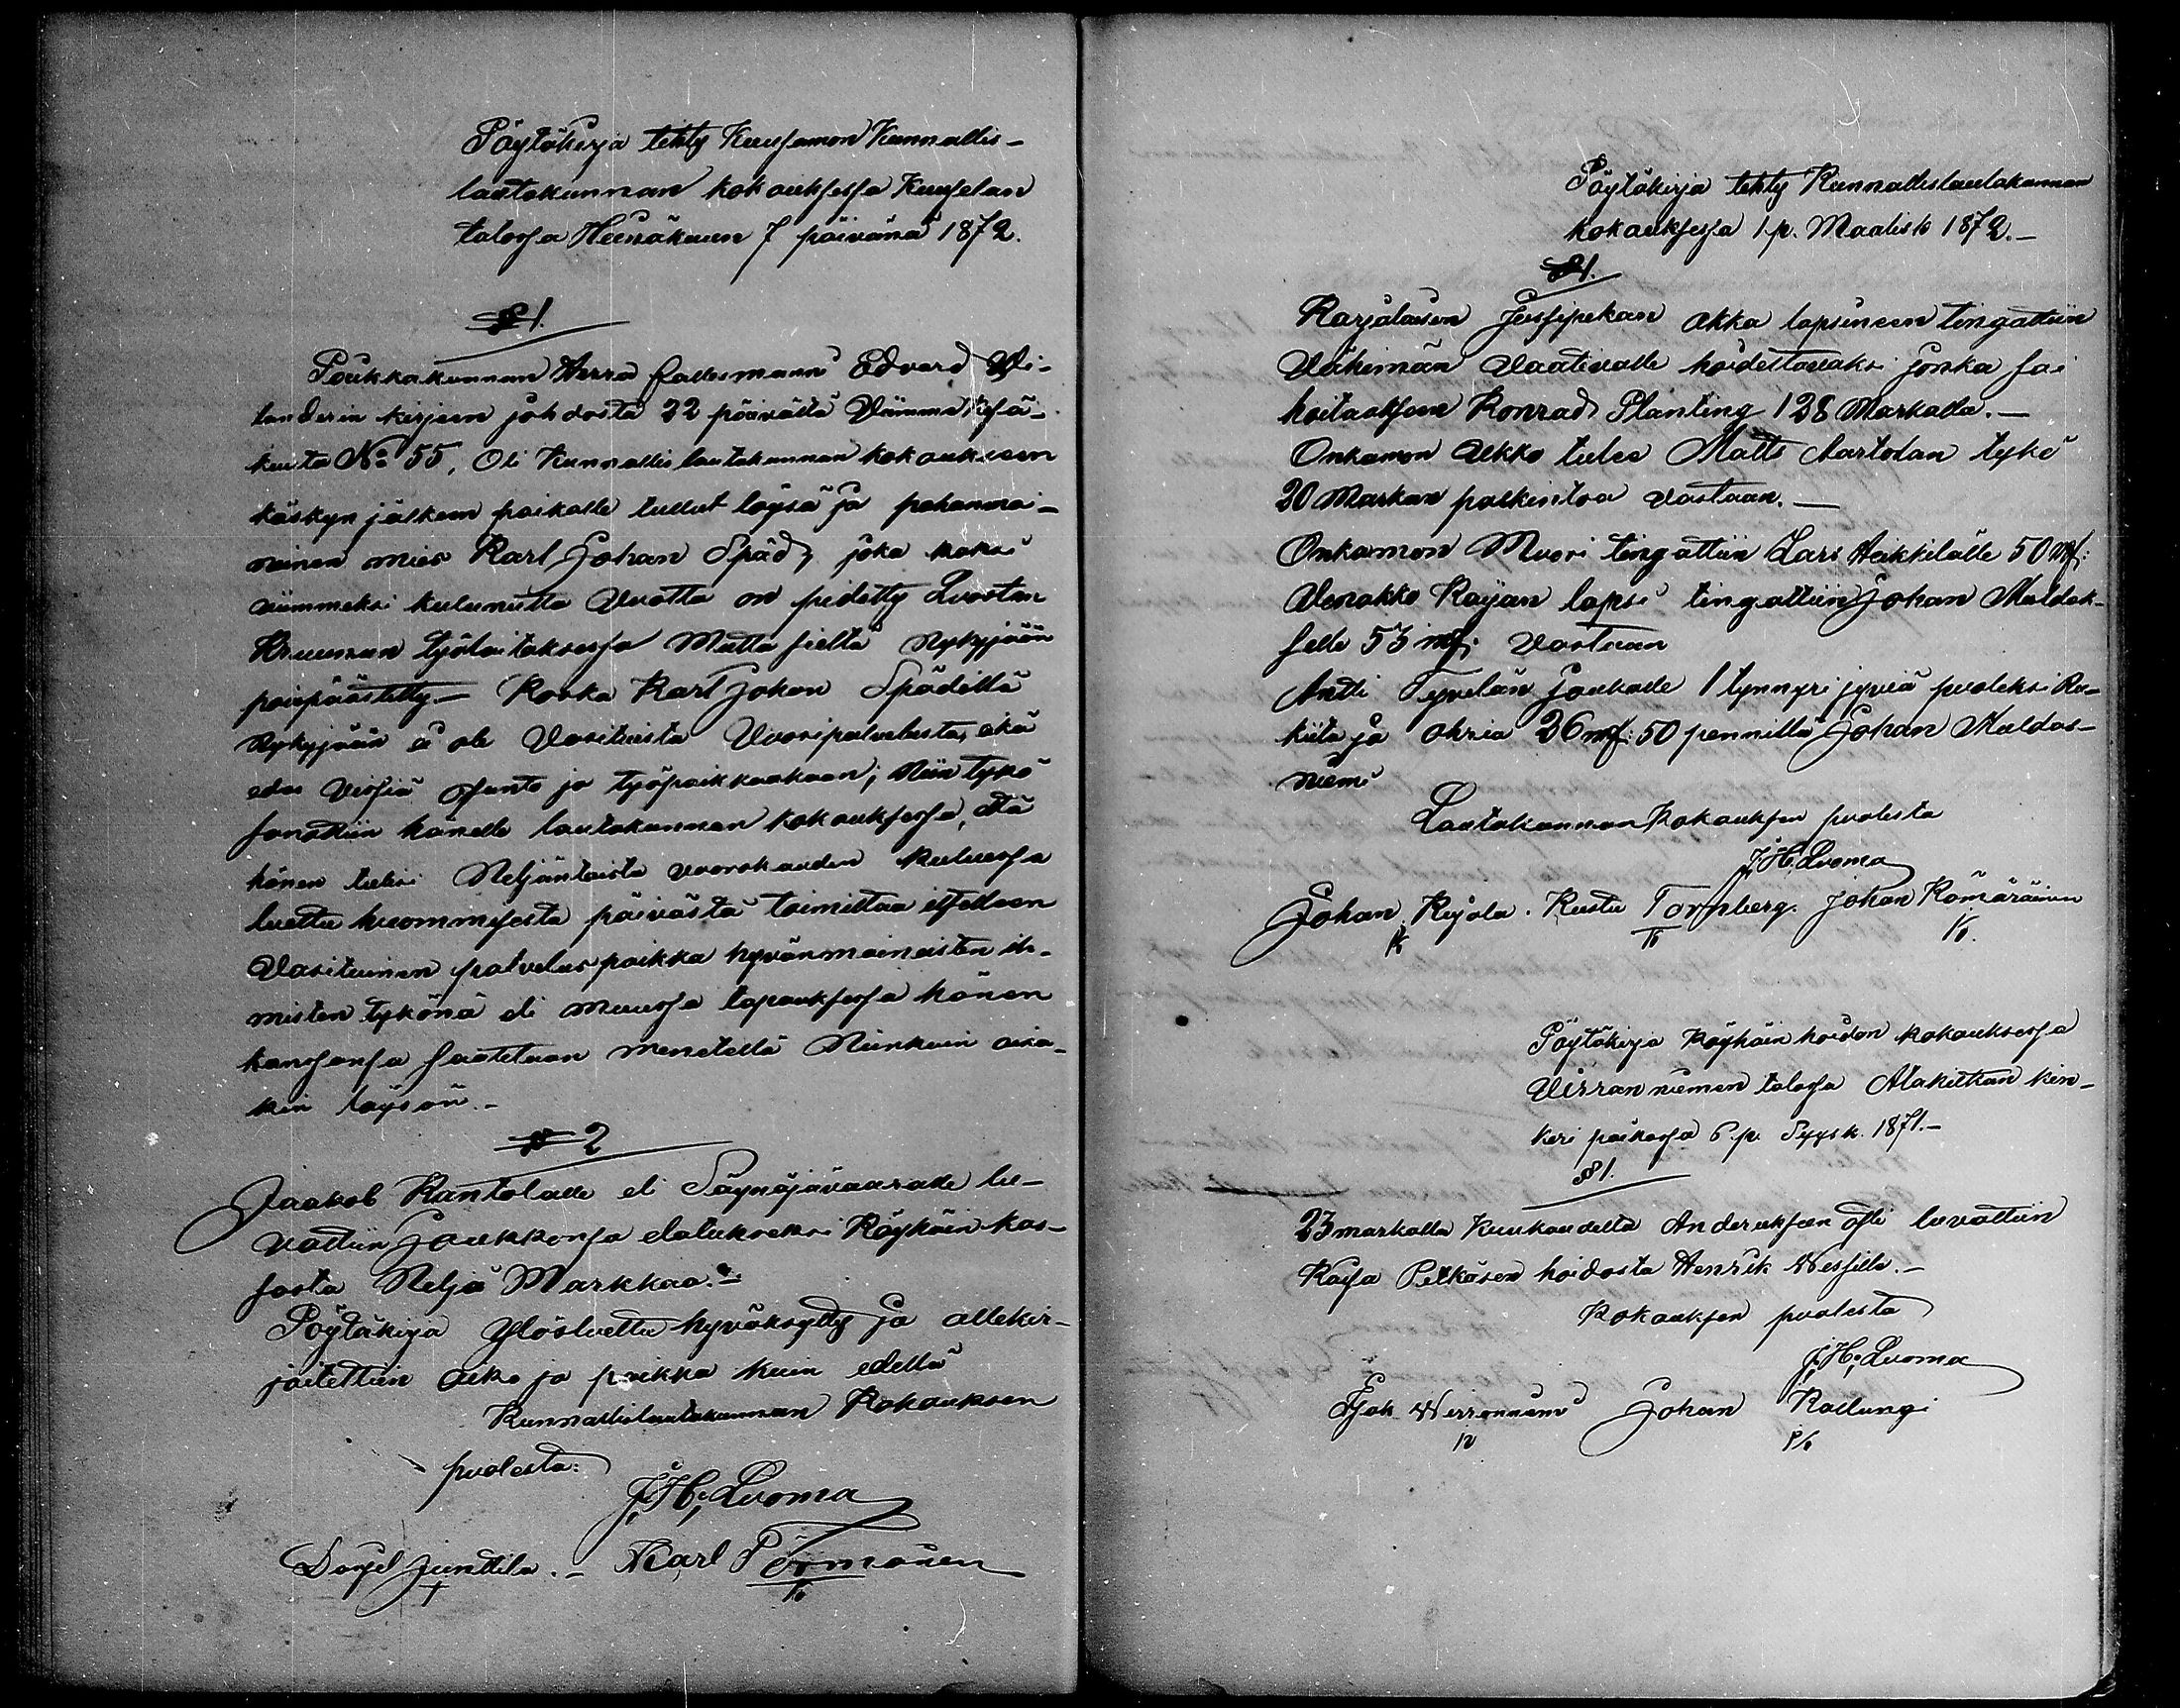 Pöytäkirja tehty Kuusamon Kunnallis-
lautakunnan kokouksessa Kuuselan
talossa Heinäkuun 7 päivänä 1872.
§ 1.
Poukkakunnan Herra Edvard Vi-
landerin kirjeen johdosta 22 päivältä Viimme Kesä-
kuuta No 55, Oli Kunnallislautakunnan kokoukseen
käskyn jälkeen paikalle tullut löysä ja pahanmai-
neinen mies Karl Johan Späd, joka kaksi
viimmeksi kulunutta Vuotta on pidetty Lvostan
Kruunun työlaitoksessa Mutta sieltä Nykyjään
poispäästetty – Koska Karl Johan Spädillä
Nykyjään ei ole Varitusta Vuosipalvelusta, eikä
edes Vissiä Asunto ja työpaikkaakaan; Niin tykö
sanottiin hänelle lautakunnan kokouksessa, että
hänen tulisi Neljäntoista vuorokauden kuluessa
luettu huommisesta päivästä toimittaa itselleen
Varituinen palveluspaikka hyvänmaineisten ih-
misten tykönä eli muussa tapauksessa hänen
kanssansa saatetaan menetellä Niinkuin ainа-
kin löysän. –
§ 2
Jaakob Rantolalle eli Säynäjävaaralle lu-
vattiin Joukkonsa elatukseksi Köyhäin kas-
sasta Neljä Markkaa. –
Pöytäkirja Ylösluettu hyväksytty ja allekir-
joitettiin aika ja paikka kuin edellä
Kunnallislautakunnan Kokouksen
puolesta:
J, H, Luoma
Junttila. – Karl Pörmänen
Pöytäkirja tehty Kunnallislautakunnan
kokouksessa 1 p. Maalisk 1872. –
§ 1.
Karjalaisen Jussipekan akka lapsineen tingattiin
Vähimän Vaativalle hoidettavaksi jonka sai
hoitaaksen Konrad Planting 128 Markalla. –
Onkamon Ukko tulee Matts Aartolan tykö
20 Markan palkintoa vastaan. –
Onkamon Muori tingattiin Lars Heikkilälle 50 mk:
Venakko Kayan lapsi tingattiin Johan Muldok-
selle 53 mk: vastaan
Antti Tyvelän Joukolle 1 tynnyri jyviä puoleksi Ru-
kiita ja ohria 26 mk: 50 pennillä Johan Muldos-
niemi
Lautakunnan Kokouksen puolesta
J, H, Luoma
Johan Kujola. Kustu Tornberg. Johan Kämäräinen
Pöytäkirja Köyhäin hoidon kokouksessa
Virranniemen talossa Alakitkan kin-
keri paikassa 6 p. Syysk. 1871. –
§ 1.
23 markalla Kuukaudelta Anderuksen asti luvattiin
Kaisa Pitkäsen hoidosta Henrik Nessille. –
Kokouksen puolesta
J, H, Luoma
Joh Wirranniemi Johan Radlungi